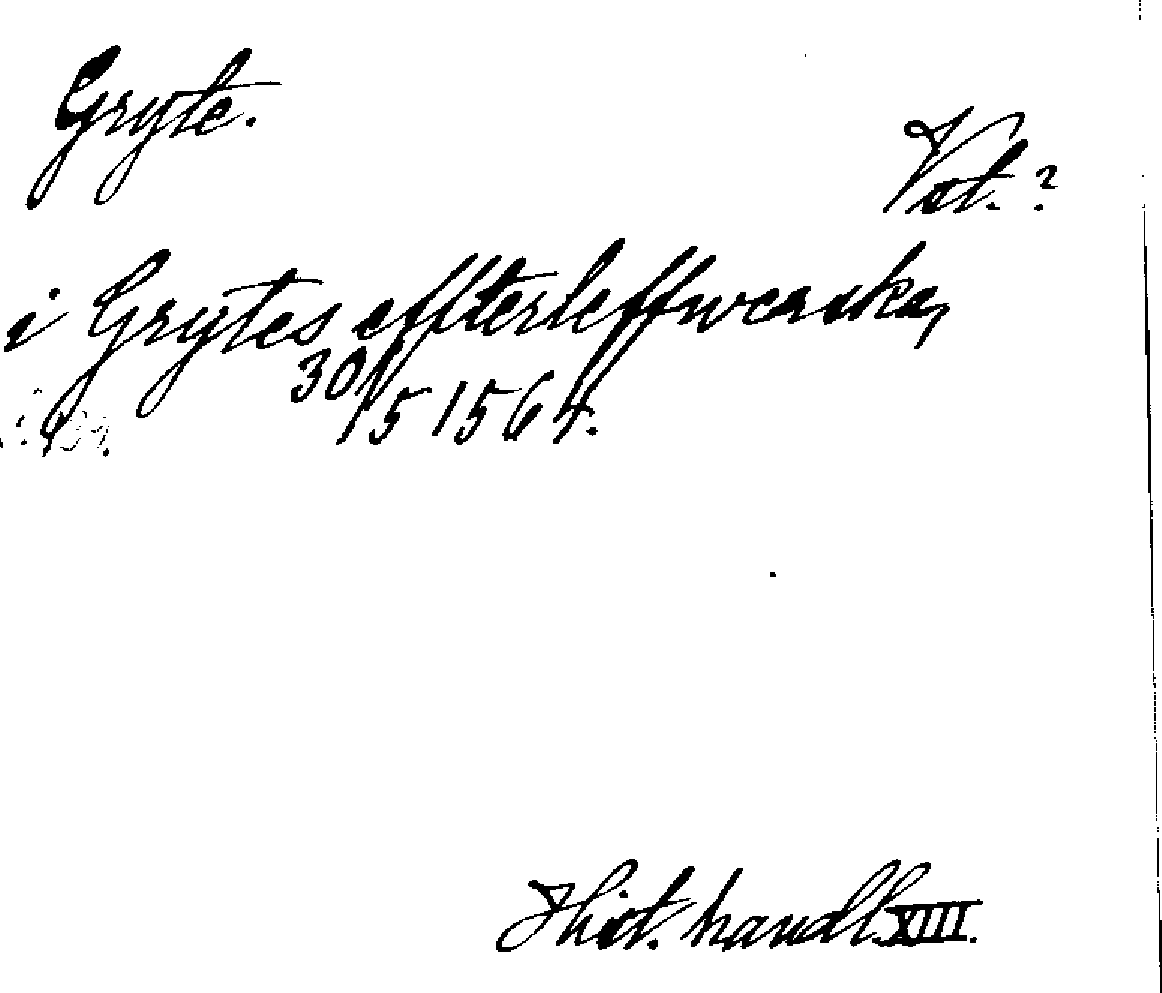 Gryte.
Vst. ?
i Grytes effterleffwerska,
30/5 1564.
Hist. handl. XIII.